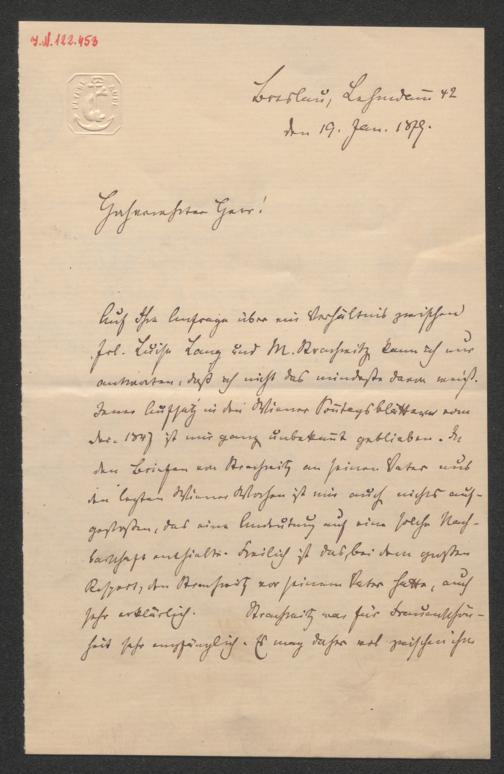 J.N. 122.453
Breslau, Lehmdamm 42
den 19. Jan. 1879.
Hochverehrter Herr!
Auf Ihre Anfrage über ein Verhältnis zwischen
Frl. Luise Lang und M. Strachwitz kann ich nur
antworten, daß ich nicht das mindeste davon weiß.
Jener Aufsatz in den Wiener Sonntagsblättern vom
Dec. 1847 ist mir ganz unbekannt geblieben. In
den Briefen von Strachwitz an seinen Vater aus
den letzten Wiener Wochen ist mir auch nichts auf-
gestoßen, das eine Andeutung auf eine solche Nach-
barschaft enthielte. Freilich ist das, bei dem großen
Respect, den Strachwitz vor seinem Vater hatte, auch
sehr erklärlich. Strachwitz war für Frauenschön-
heit sehr empfänglich. Es mag daher wol zwischen ihm